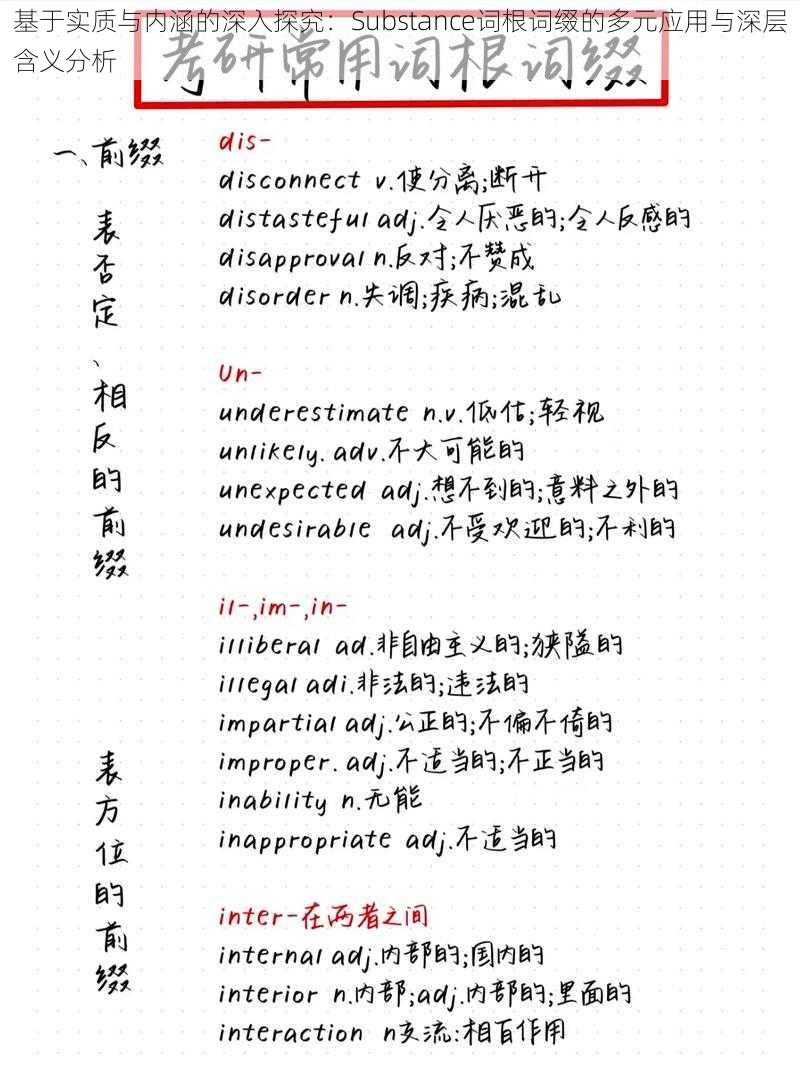 基于实质与内涵的深入探究：Substance词根词缀的多元应用与深层
含义分析
考研常用词根词缀
一、前缀
表否定、相反的前缀
dis-
disconnect v.使分离;断开
distasteful adj.令人厌恶的;令人反感的
disapproval n.反对;不赞成
disorder n.失调;疾病;混乱
un-
underestimate n.v.低估;轻视
unlikely. adv.不大可能的
unexpected adj.想不到的;意料之外的
undesirable adj.不受欢迎的;不利的
il-,im-,in-
illiberal ad.非自由主义的;狭隘的
illegal adi.非法的;违法的
impartial adj.公正的;不偏不倚的
improper. adj.不适当的;不正当的
inability n.无能
inappropriate adj.不适当的
表方位的前缀
inter-在两者之间
internal adj.内部的;国内的
interior n.内部;adj.内部的;里面的
interaction n交流:相百作用